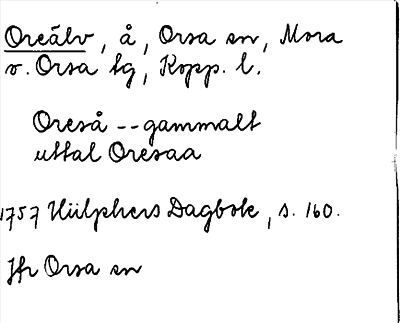 Oreälv, å, Orsa sn, Mora
o. Orsa tg, Kopp. l.
Oreså -- gammalt
uttal Oresaa
1757 Hülphers Dagbok, s. 160.
Jfr Orsa sn